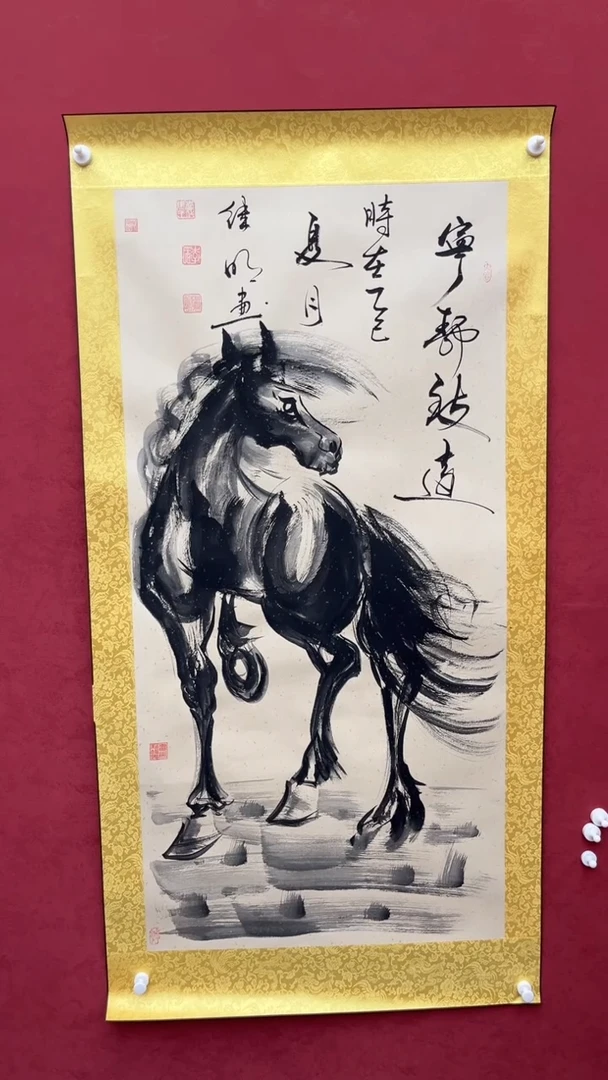 寧靜致遠
時在乙巳
夏月
继明画